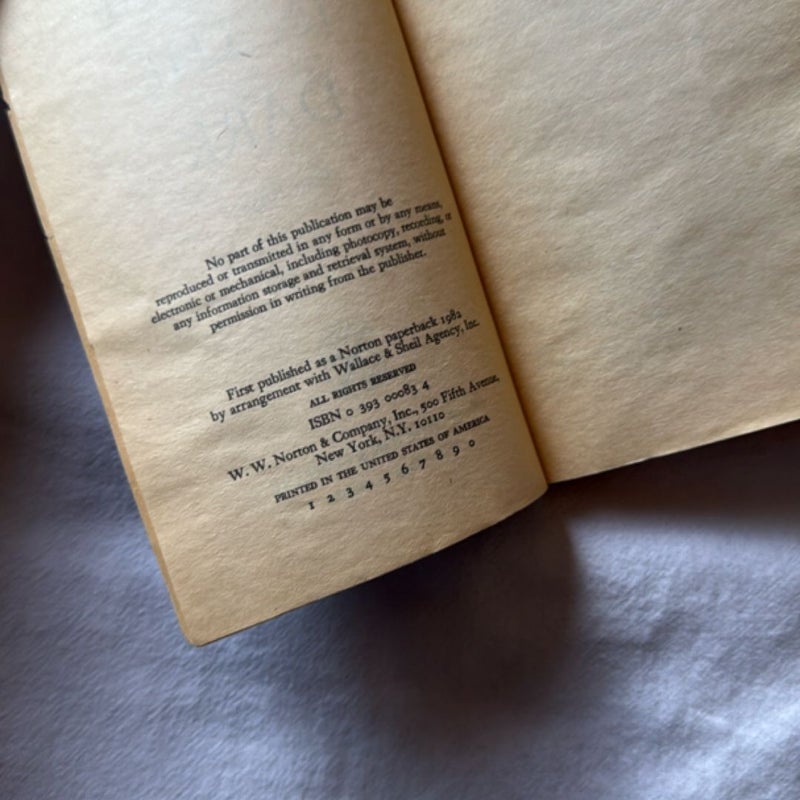 No part of this publication may be
reproduced or transmitted in any form or by any means,
electronic or mechanical, including photocopy, recording, or
any information storage and retrieval system, without
permission in writing from the publisher.
First published as a Norton paperback 1982
by arrangement with Wallace & Sheil Agency, Inc.
ALL RIGHTS RESERVED
ISBN 0 393 00083 4
W. W. Norton & Company, Inc., 500 Fifth Avenue,
New York, N.Y. 10110
PRINTED IN THE UNITED STATES OF AMERICA
1 2 3 4 5 6 7 8 9 0